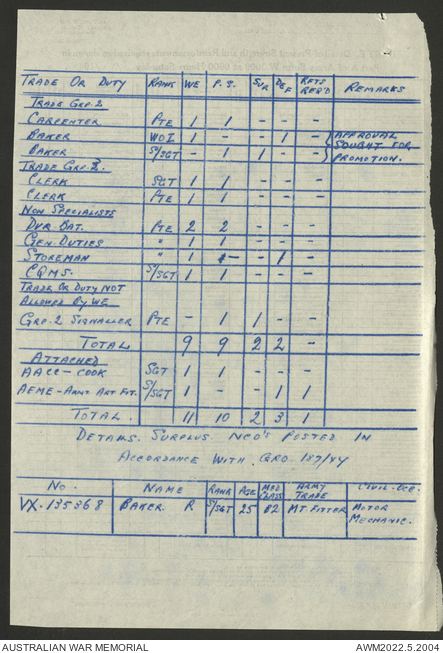 TRADE OR DUTY RANK WE P.S. SUR DEF RFTS REQ'D REMARKS
TRADE GRP-2
CARPENTER PTE 1 1 - - -
BAKER WO I 1 - - 1 - APPROVAL
BAKER S/SGT - 1 1 - - SOUGHT FOR
PROMOTION.
TRADE GRP. 3.
CLERK SGT 1 1 - - -
CLERK PTE 1 1 - - -
NON SPECIALISTS
DVR BAT. PTE 2 2 - - -
GEN. DUTIES " 1 1 - - -
STOREMAN " 1 - - 1 -
CQMS. S/SGT 1 1 - - -
TRADE OR DUTY NOT
ALLOWED BY WE
GRP-2 SIGNALLER PTE - 1 1 - -
TOTAL 9 9 2 2 -
ATTACHED
AACC - COOK SGT 1 1 - - -
AEME - ARMT ART FIT. S/SGT 1 - - 1 1
TOTAL. 11 10 2 3 1
DETAILS. SURPLUS. NCO'S POSTED IN
ACCORDANCE WITH GRO. 187/44
NO. NAME RANK AGE MED CLASS ARMY TRADE CIVIL. OCC.
VX.135368 BAKER. R S/SGT 25 B2 MT FITTER MOTOR
MECHANIC.
AUSTRALIAN WAR MEMORIAL AWM2022.5.2004